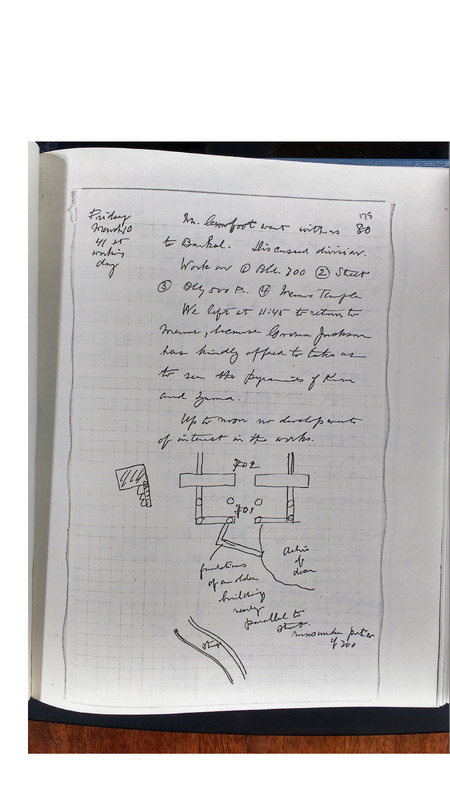 Friday
March 10
41 st
working
day
175
Mr. Crowfoot went with us 80
to Barkal. Discussed division.
Work on ① Bld. 700 ② Street
③ Bldg 500 F. ④ Meroe Temple
We left at 11:45 to return to
Merowe, because Governor Jackson
has kindly offered to take us
to see the Pyramids of Kurru
and Zuma.
Up to noon no developments
of interest in the works.
702
701
foundations
of an older
building
nearly
parallel to
street.
runs under portion
of 700
of
door